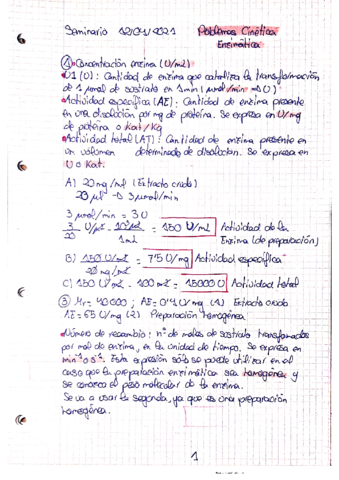 Seminario 12/04/2021 Problemas Cinética
Enzimática
① • Concentración enzima (U/ml)
• U1 (U): Cantidad de enzima que cataliza la transformación
de 1 μmol de sustrato en 1min (μmol/min ⇒ U)
• Actividad específica (AE): Cantidad de enzima presente
en una disolución por mg de proteína. Se expresa en U/mg
de proteína o Kat/Kg
• Actividad total (AT): Cantidad de enzima presente en
un volumen determinado de disolución. Se expresa en
U o Kat.
A) 20mg/ml (Extracto crudo)
20 μl → 3μmol/min
3 μmol/min = 3U
3/20 U/μl · 10³μl/1mL = 150 U/mL Actividad de la
Enzima (de preparación)
B) 150 U/ml / 20 mg/ml = 7'5 U/mg Actividad específica
C) 150 U/ml · 100 ml = 15000 U Actividad total
③ Mr= 40000; AE= 0'4 U/mg (1) Extracto crudo
AE= 65 U/mg (2) Preparación homogénea
• Número de recambio: nº de moles de sustrato transformados
por mol de enzima, en la unidad de tiempo. Se expresa en
min⁻¹ o s⁻¹. Esta expresión sólo se puede utilizar en el
caso que la preparación enzimática sea homogénea y
se conozca el peso molecular de la enzima.
Se va a usar la segunda, ya que es una preparación
homogénea.
1